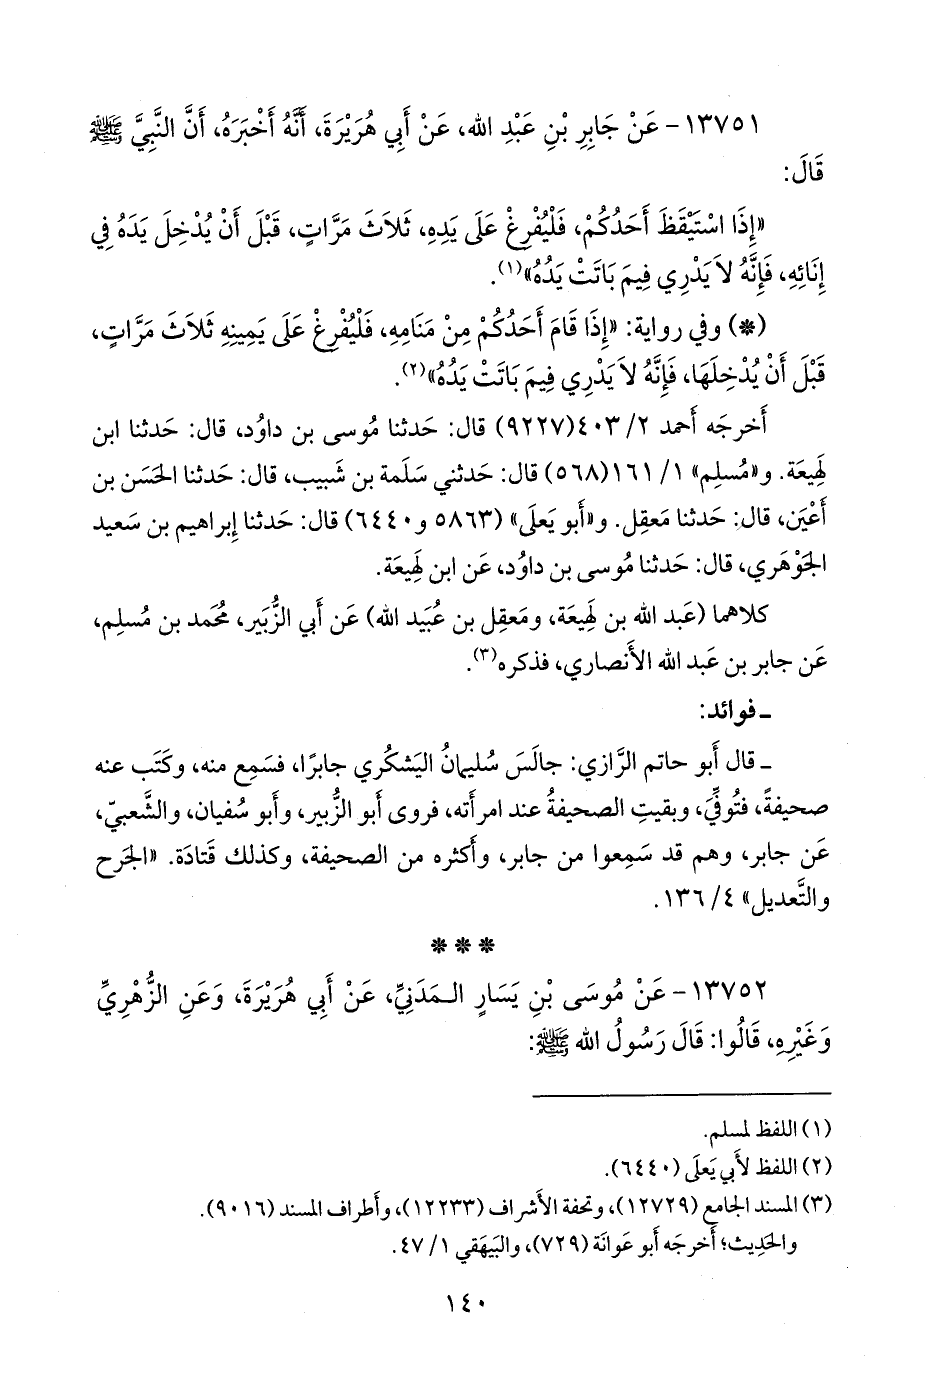 ١٣٧٥١ - عَنْ جَابِرِ بْنِ عَبْدِ الله، عَنْ أَبِي هُرَيْرَةَ، أَنَّهُ أَخْبَرَهُ، أَنَّ النَّبِيَّ ﷺ
قَالَ:
«إِذَا اسْتَيْقَظَ أَحَدُكُمْ، فَلْيُفْرِغْ عَلَى يَدِهِ، ثَلَاثَ مَرَّاتٍ، قَبْلَ أَنْ يُدْخِلَ يَدَهُ فِي
إِنَائِهِ، فَإِنَّهُ لاَ يَدْرِي فِيمَ بَاتَتْ يَدُهُ»(١).
(*) وفي رواية: «إِذَا قَامَ أَحَدُكُمْ مِنْ مَنَامِهِ، فَلْيُفْرِغْ عَلَى يَمِينِهِ ثَلَاثَ مَرَّاتٍ،
قَبْلَ أَنْ يُدْخِلَهَا، فَإِنَّهُ لاَ يَدْرِي فِيمَ بَاتَتْ يَدُهُ»(٢).
أَخرجَه أَحمد ٢/ ٤٠٣(٩٢٢٧) قال: حَدثنا مُوسى بن داوُد، قال: حَدثنا ابن
لَهِيعَة. و«مُسلِم» ١/ ١٦١(٥٦٨) قال: حَدثني سَلَمة بن شَبيب، قال: حَدثنا الحَسَن بن
أَعْيَن، قال: حَدثنا مَعقِل. و«أَبو يَعلَى» (٥٨٦٣ و٦٤٤٠) قال: حَدثنا إِبراهيم بن سَعيد
الجَوْهَري، قال: حَدثنا مُوسى بن داوُد، عَن ابن لَهِيعَة.
كلاهما (عَبد الله بن لَهِيعَة، ومَعقِل بن عُبَيد الله) عَن أَبي الزُّبَير، مُحَمد بن مُسلِم،
عَن جابر بن عَبد الله الأَنصاري، فذكره(٣).
ـ فوائد:
ـ قال أَبو حاتم الرَّازي: جالَسَ سُليمانُ اليَشكُري جابرًا، فسَمِع منه، وكَتَب عنه
صحيفةً، فتُوفِّيَ، وبقيتِ الصحيفةُ عند امرأَته، فروى أَبو الزُّبير، وأَبو سُفيان، والشَّعبيّ،
عَن جابر، وهم قد سَمِعوا من جابر، وأَكثره من الصحيفة، وكذلك قَتادَة. «الجَرح
والتَّعديل» ٤/ ١٣٦.
* * *
١٣٧٥٢ - عَنْ مُوسَى بْنِ يَسَارٍ الـمَدَنِيِّ، عَنْ أَبِي هُرَيْرَةَ، وَعَنِ الزُّهْرِيِّ
وَغَيْرِهِ، قَالُوا: قَالَ رَسُولُ الله ﷺ:
(١) اللفظ لمسلم.
(٢) اللفظ لأَبي يَعلَى (٦٤٤٠).
(٣) المسند الجامع (١٢٧٢٩)، وتحفة الأَشراف (١٢٢٣٣)، وأَطراف المسند (٩٠١٦).
والحَدِيث؛ أَخرجَه أَبو عَوانَة (٧٢٩)، والبَيهَقي ١/ ٤٧.
١٤٠